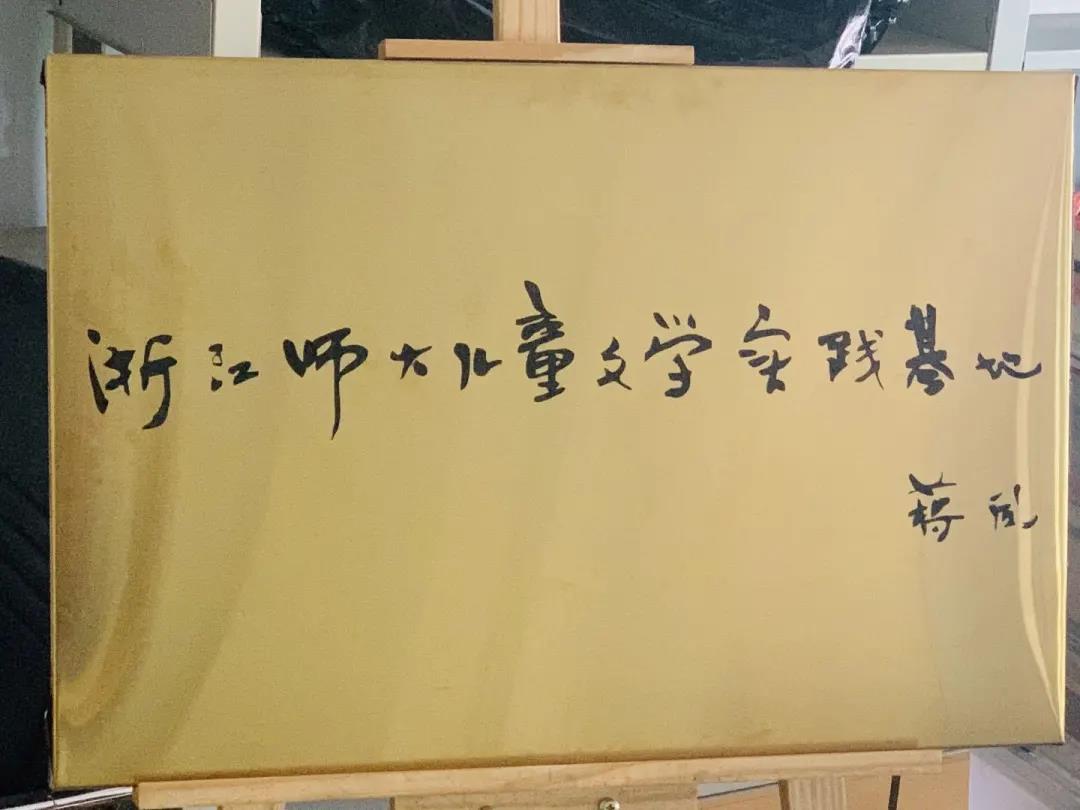 浙江师大儿童文学实践基地
蒋风